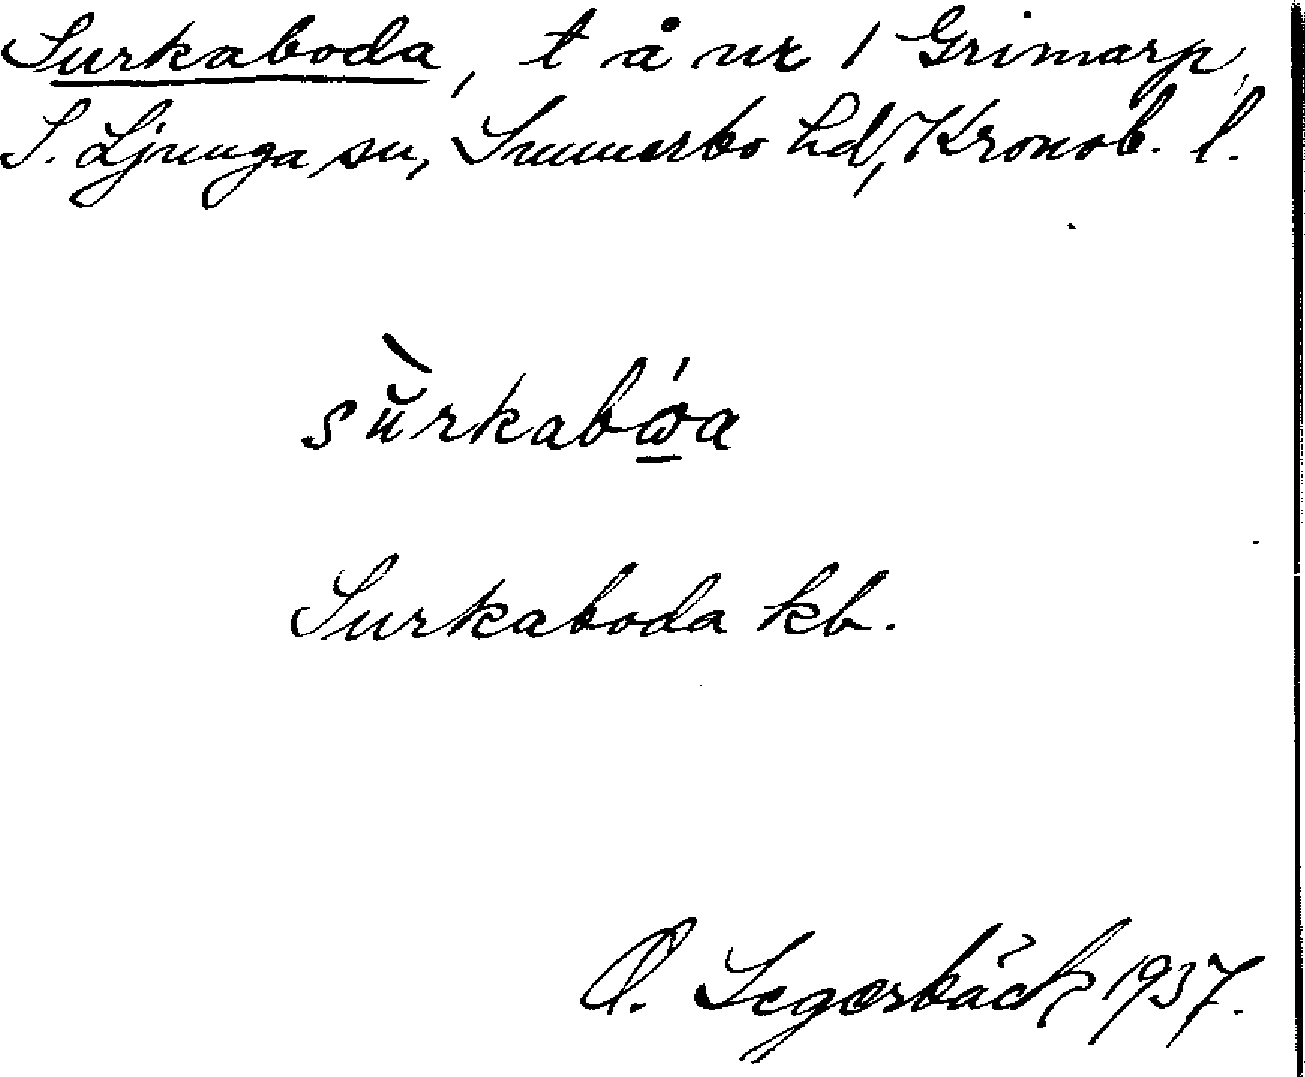 Surkaboda, t å nr 1 Grimarp,
S. Ljunga sn, Sunnerbo hd, Kronob. l.
sùrkabώa
Surkaboda kb.
O. Segerbäck 1937.